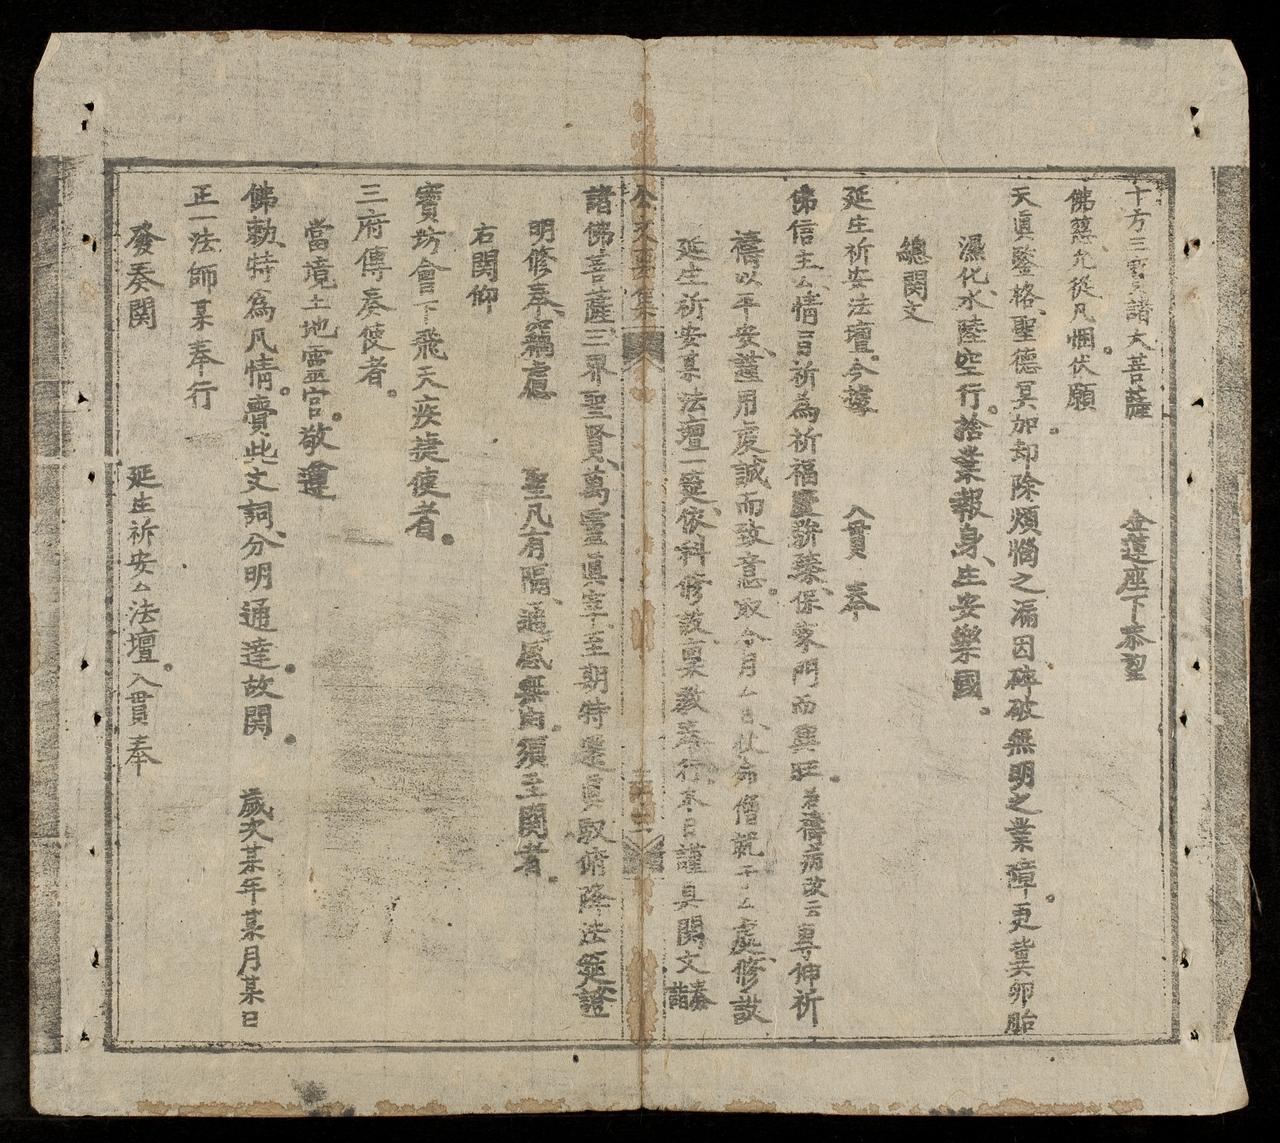 十方三寶諸大菩薩 金蓮座下恭望
佛慈允從凡悃伏願
天眞鑒格聖德冥加却除煩惱之漏因碎破無明之業障更冀卵胎
濕化水陸空行捨業報身生安樂國
總関文
延生祈安法壇今據 入貫 奉
佛信主厶情旨祈為祈福 保家門而興旺若禱病改云專伸祈
禱以平安謹用虔誠而致意取今月厶日仗命僧就于厶處修設
延生祈安某法壇一筵依科修設稟教奉行本日謹具関文奏請
諸佛菩薩三界聖賢萬靈眞宰至期特 眞馭俯降法筵證
明修奉竊慮 聖凡有隔通感無由須至関者
右関仰
寶坊會下飛天疾捷使者
三府傳奏使者
當境土地靈官敬遵
佛勅特為凡情賫此文詞分明通達故関 歲次某年某月某日
正一法師某奉行
發奏関 延生祈安厶法壇入貫奉